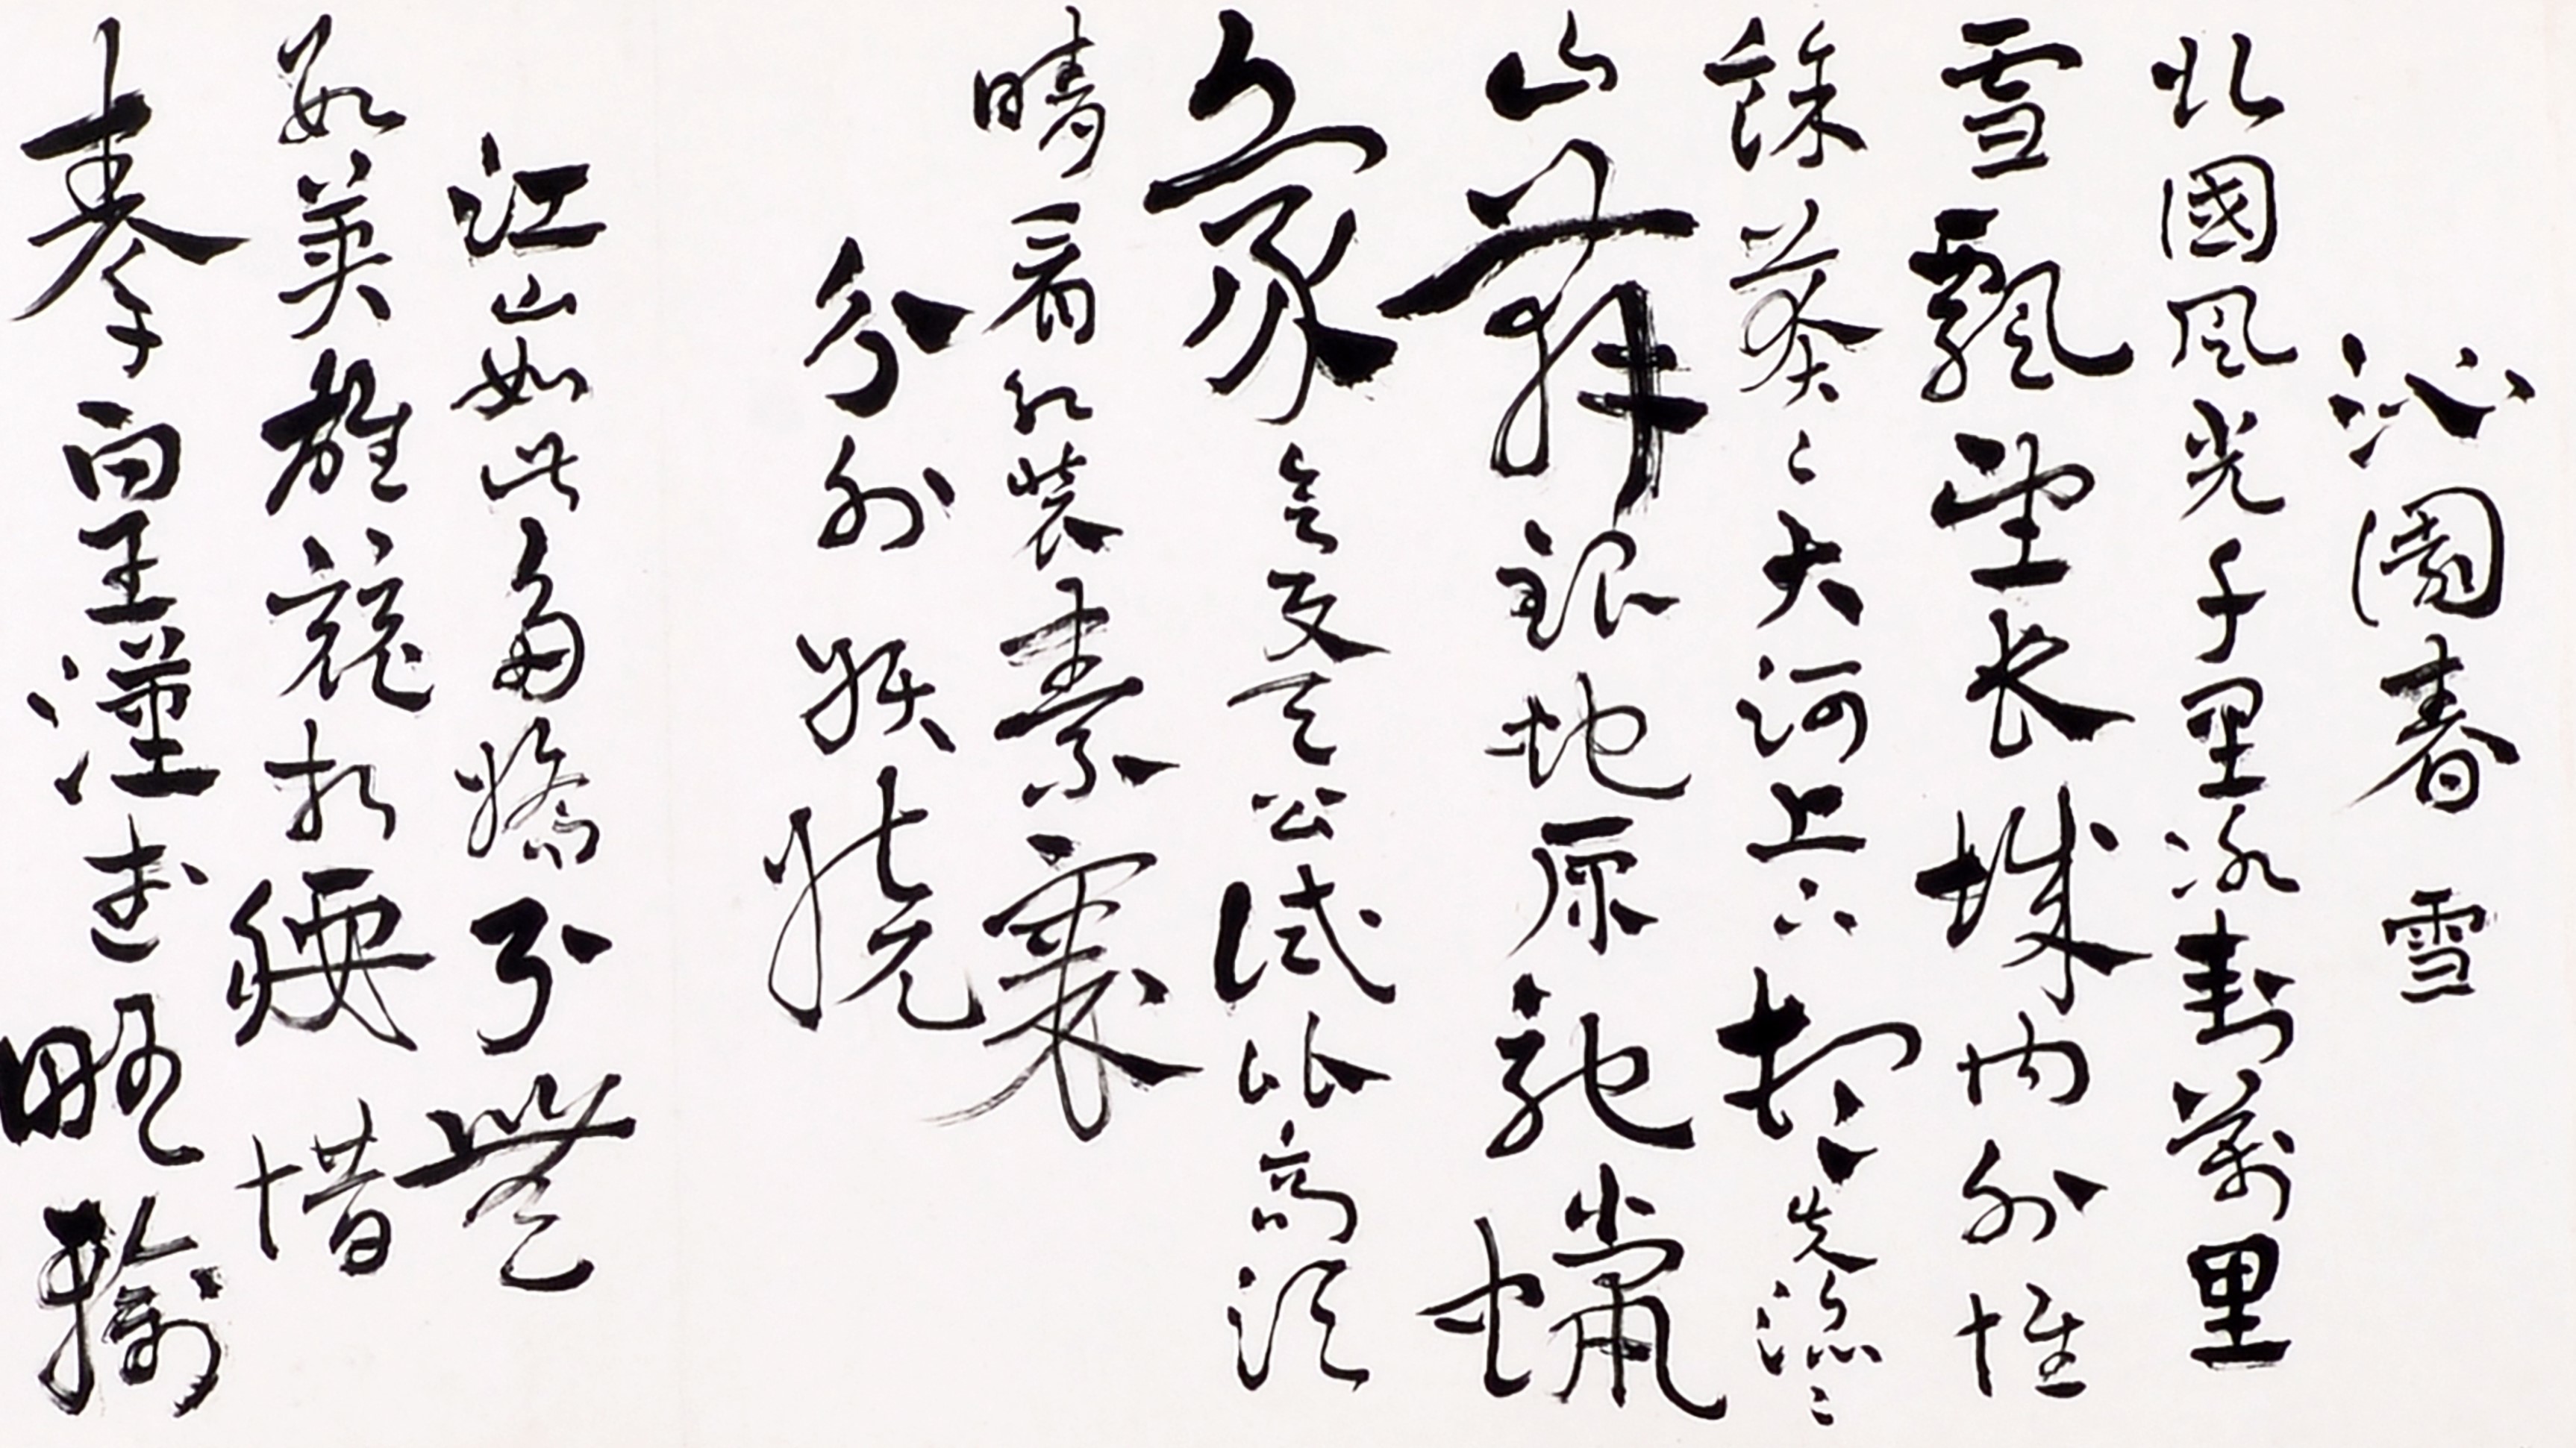 沁園春 雪
北國風光千里冰封萬里
雪飄望長城内外惟
餘莽〻大河上下頓失滔〻
山舞銀蛇原馳蠟
象欲與天公試比高須
晴看紅裝素裹
分外妖嬈
江山如此多嬌引無
數英雄競折腰惜
秦皇漢武略輸